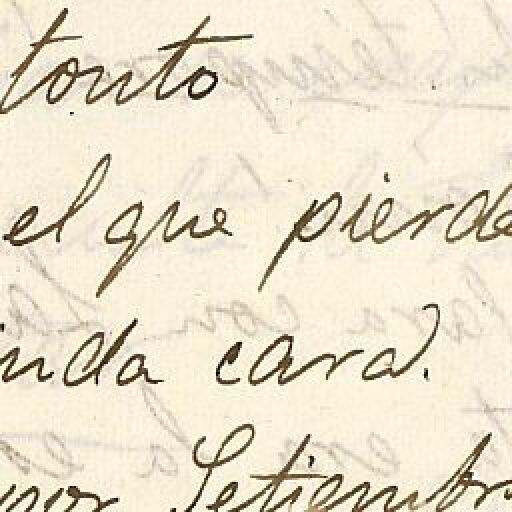 tonto
el que pierde
inda cara.
Setiembr